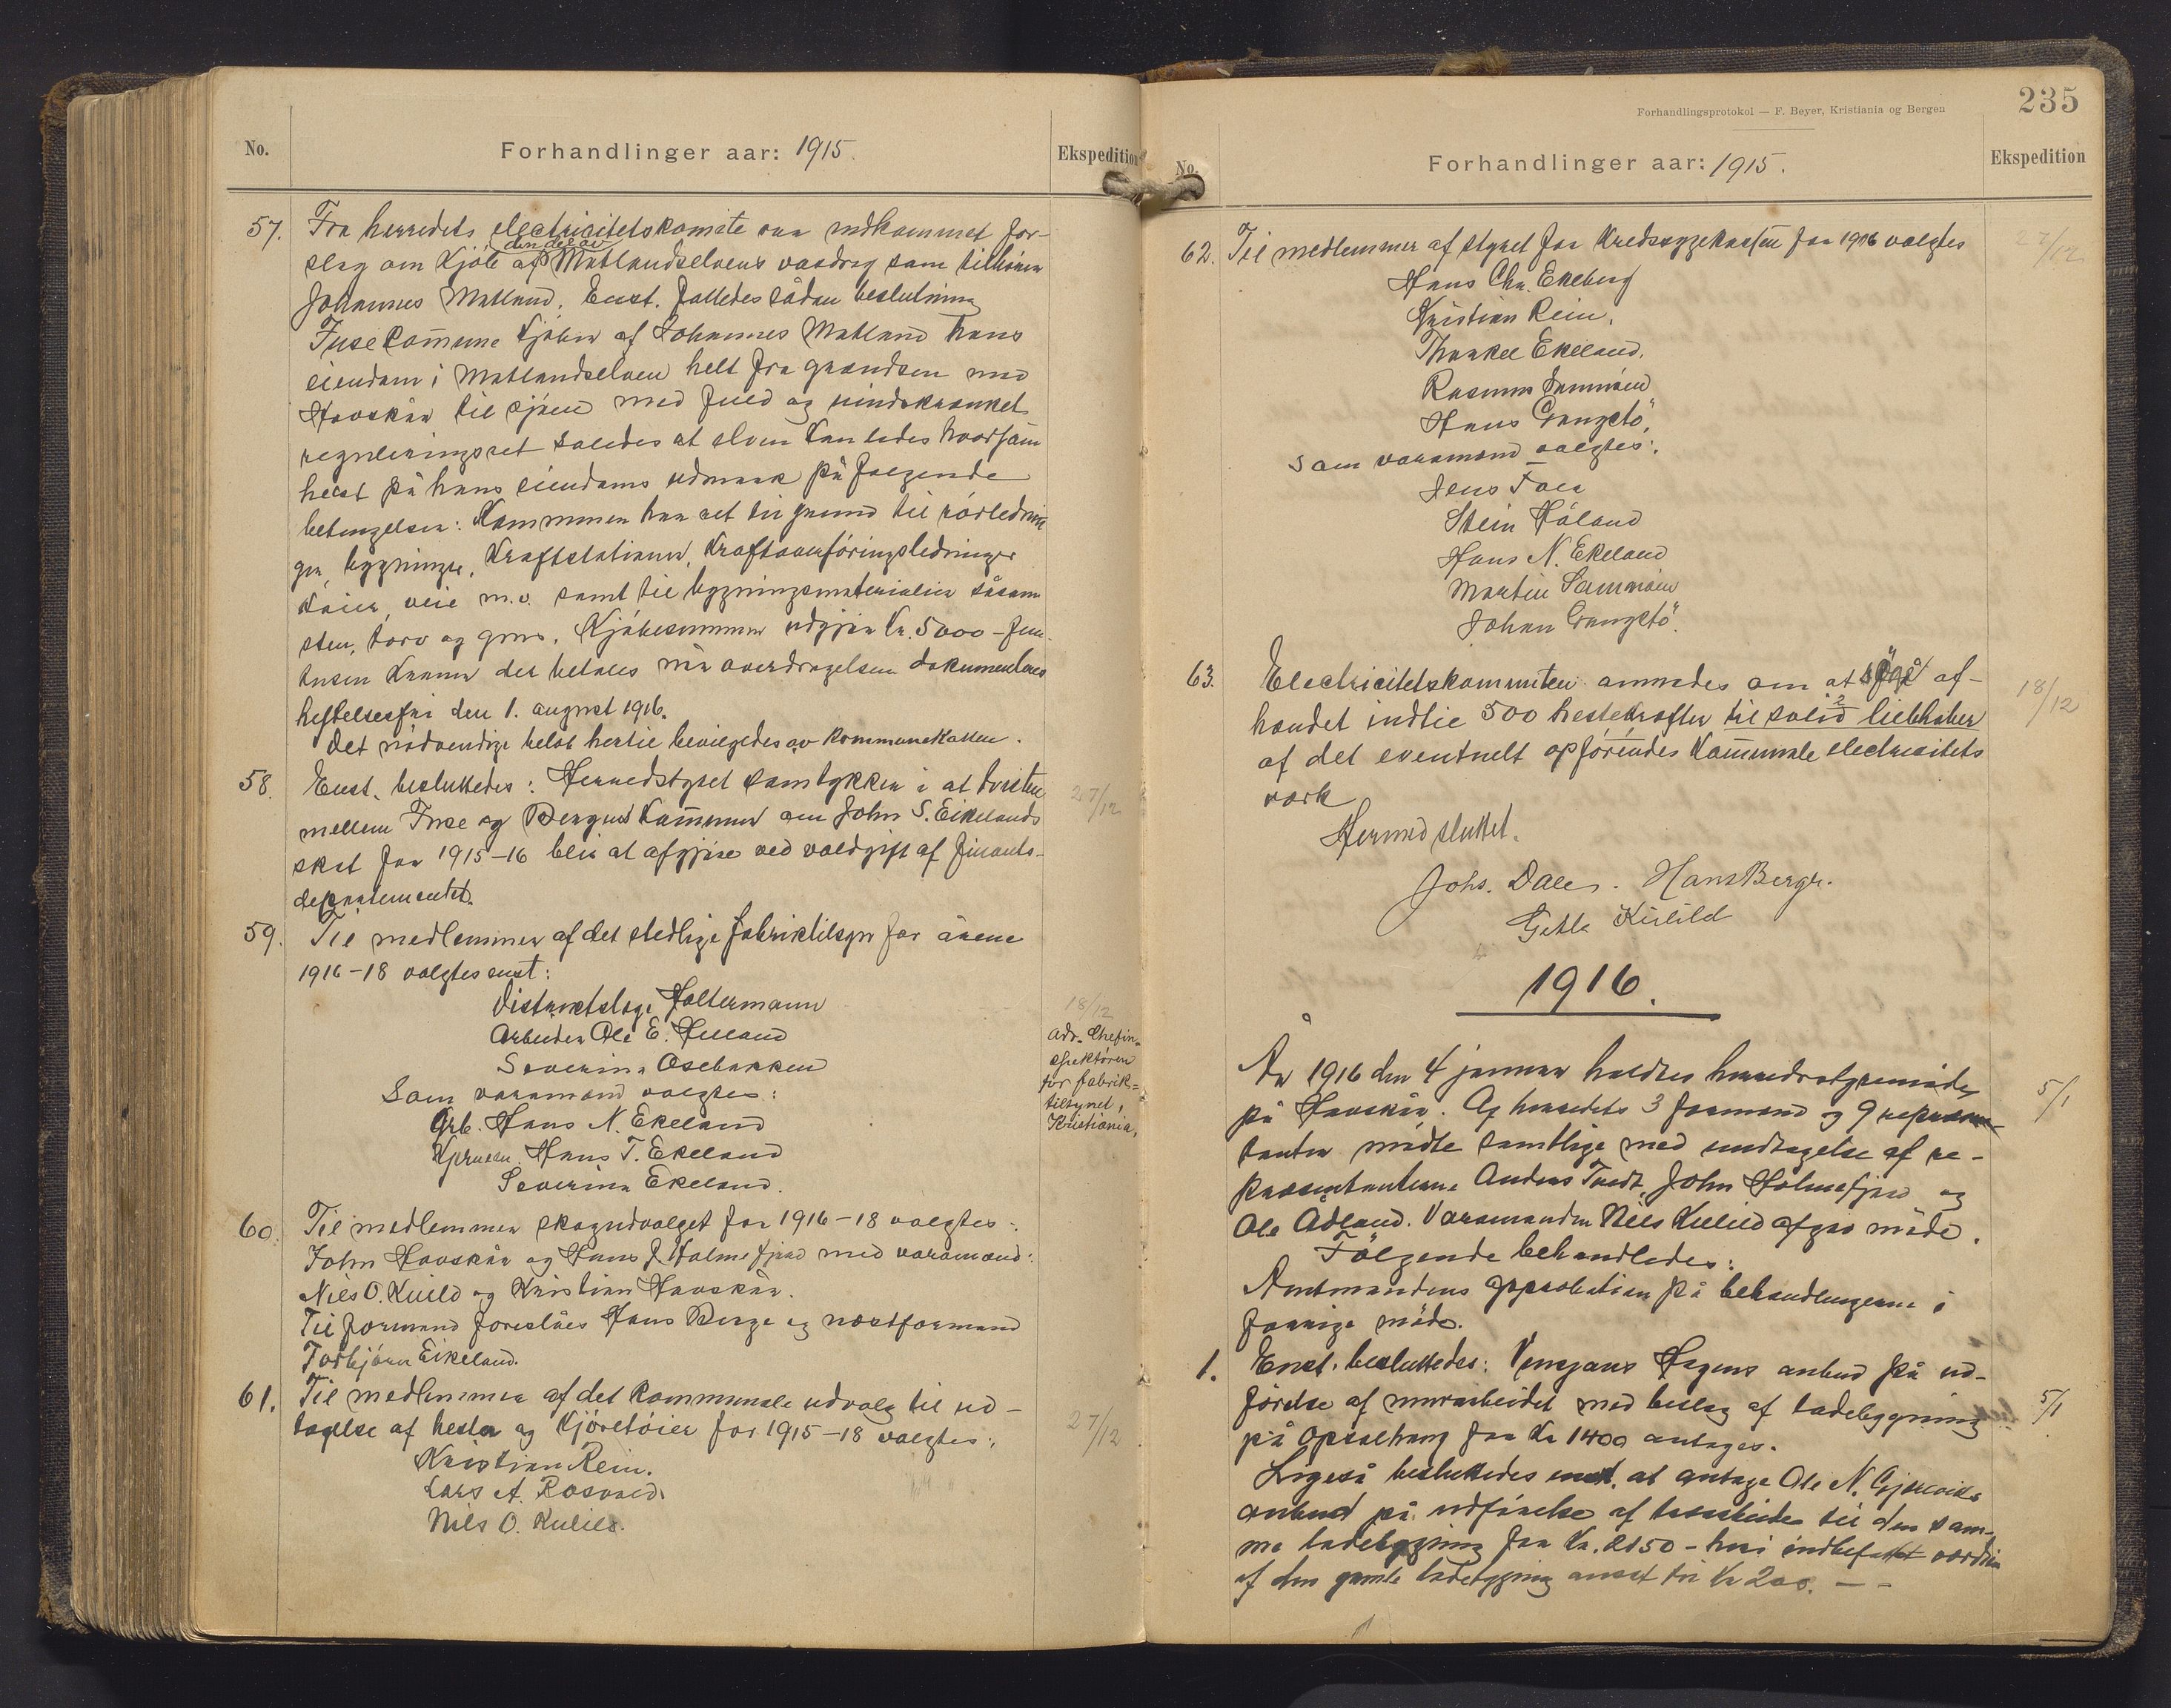 No.
Forhandlinger aar: 1915.
Ekspedition
57. Fra herredets electricitetskomite var indkommet for-
den del av
slag om Kjöb af Matlandselvens vasdrag som tilhörer
Johannes Matland. Enst. fattedes sådan beslutning
Fuse Commune Kjöber af Johannes Matland hans
eiendom i Matlandselven helt fra grændsen med
Havskår til sjöen med fuld og uindskrænket
reguleringsret således at elven kan ledes hvorsom
helst på hans eiendoms udmark på folgende
betingelser: Kommunen har ret til grund til rörlednin
ger, bygninger, Kraftstationer, Kraftoverföringsledninger
Kaier, veie m.v. samt til bygningsmaterialier såsom
sten, torv og grus. Kjöbesummen udgjör Kr. 5000 - fem
tusen Kroner der betales når overdragelsen dokumenteres
heftelsesfri den 1. august 1916.
Det nödvendige belöb hertil bevilgedes av Kommunekassen.
58. Enst. besluttedes: Herredstyret samtykker i at tvisten
mellem Fuse og Bergens Kommuner om John S. Eikelands
skat for 1915-16 blir at afgjöre ved voldgift af finants-
departementet.
27/12
59. Til medlemmer af det stedlige fabriktilsyn for årene
1916-18 valgtes enst:
Distriktslæge Holtermann
Arbeider Ole E. Helland
Severine Osebakken
Som varamænd valgtes:
Arb. Hans N. Ekeland
Hans T. Ekeland
Severine Ekeland.
18/12
adr. Chefin-
spektören
for fabrik-
tilsynet,
Kristiania.
60. Til medlemmer skogudvalget for 1916-18 valgtes:
John Havskår og Hans J. Holmefjord med varamænd:
Nils O. Kulild og Kristian Havskår.
Til formand foreslåes Hans Berge og næstformand
Torbjörn Eikeland.
61. Til medlemmer af det kommunale udvalg til ud-
tagelse af hester og Kjöretöier for 1915-18 valgtes:
Kristian Rein.
Lars A. Rosvold.
Nils O. Kulild.
27/12
Forhandlingsprotokol — F. Beyer, Kristiania og Bergen
235
No.
Forhandlinger aar: 1915.
Ekspedition
62. Til medlemmer af styret for Kredssygekassen for 1916 valgtes
27/12
Hans Chr. Ekeberg
Kristian Rein.
Thorkel Ekeland.
Rasmus Samnöen
Hans Gangstö.
Som varamænd valgtes:
Jens
Stein Håland
Hans N. Ekeland
Martin Samnöen
Johan Gangstö.
63. Electricitetskomiteen anmodes om at af-
hændet indtil 500 hestekrafter til solid liebhaber
af det eventuelt opförendes Kommunale electricitets
værk
18/12
Hermed sluttet.
Johs. Dale. Hans Berge.
Getle Kulild
1916.
År 1916 den 4 januar holdtes herredstyremöde
på Havskår. Af herredets 3 formænd og 9 repræsen-
tanter mödte samtlige med undtagelse af re-
præsentanterne Anders Tvedt, John Holmefjord og
Ole Ådland. Varamanden Nils Kulild afgav möde.
5/1
Fölgende behandledes:
Amtmandens approbation på behandlingerne i
forrige möde.
1. Enst. besluttedes: Hagens anbud på ud-
förelse af murarbeidet med beslag af ladebygning
på Opsalhaug for Kr 1400 antages.
5/1
Ligeså besluttedes enst. at antage Ole N. Gjerviks
anbud på udförelse af træarbeidet til den sam-
me ladebygning for Kr. 2150 - heri indbefattet værdien
af den gamle ladebygning ansat til Kr 200. — -